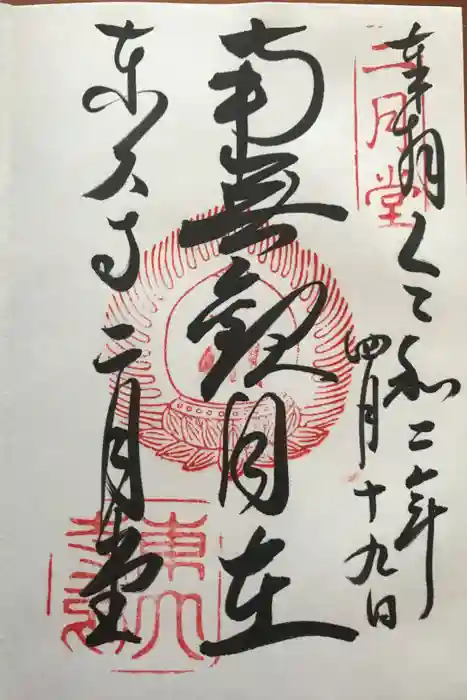 奉拝 令和二年
四月十九日
二月堂
南無観自在
東大寺 二月堂
東大